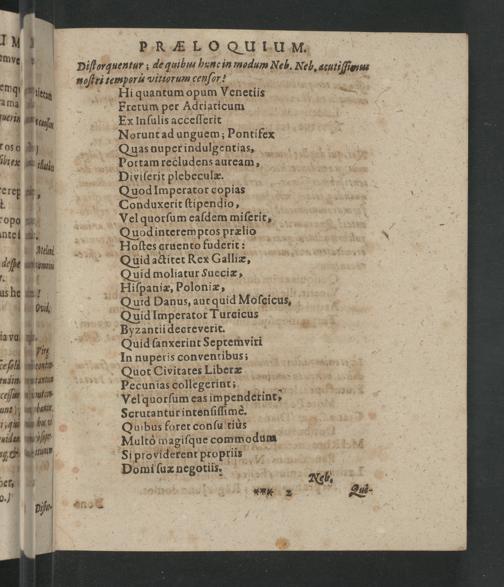 PRÆLOQUIUM.
Distorquentur; de quibus hunc in modum Neb. Neb. acutissimus
nostri temporis vitiorum censor!
Hi quantum opum Venetiis
Fretum per Adriaticum
Ex Insulis accesserit
Norunt ad unguem; Pontifex
Quas nuper indulgentias,
Portam recludens auream,
Diviserit plebeculæ.
Quod Imperator copias
Conduxerit stipendio,
Vel quorsum easdem miserit,
Quod interemptos prælio
Hostes cruento fuderit:
Quid actitet Rex Galliæ,
Quid moliatur Sueciæ,
Hispaniæ, Poloniæ,
Quid Danus, aut quid Moscicus,
Quid Imperator Turcicus
Byzantii decreverit.
Quid sanxerint Septemviri
In nuperis conventibus;
Quot Civitates Liberæ
Pecunias collegerint;
Vel quorsum eas impenderint,
Scrutantur intensissimè.
Quibus foret consultius
Multò magisque commodum
Si providerent propriis
Domi suæ negotiis.
Neb.
*** 2
Qui-